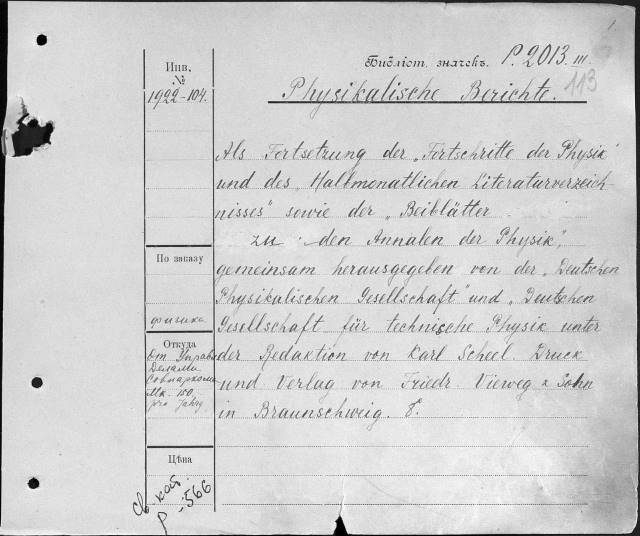 1
Библіот. значекъ. P. 2013. III.
113
Инв.
№
1922-104.
Physikalische Berichte.
Als Fortsetzung der „Fortschritte der Physik“
und des „Halbmonatlichen Literaturverzeich-
nisses“ sowie der „Beiblätter
zu den Annalen der Physik“,
gemeinsam herausgegeben von der „Deutschen
Physikalischen Gesellschaft“ und „Deutschen
Gesellschaft für technische Physik unter
der Redaktion von Karl Scheel. Druck
und Verlag von Friedr. Vieweg & Sohn
in Braunschweig. 8.
По заказу
физика
Откуда
От Управ.
Делами
Совнаркома
Mk. 150.
pro Jahrg.
Цѣна
Св. каб.
P-566